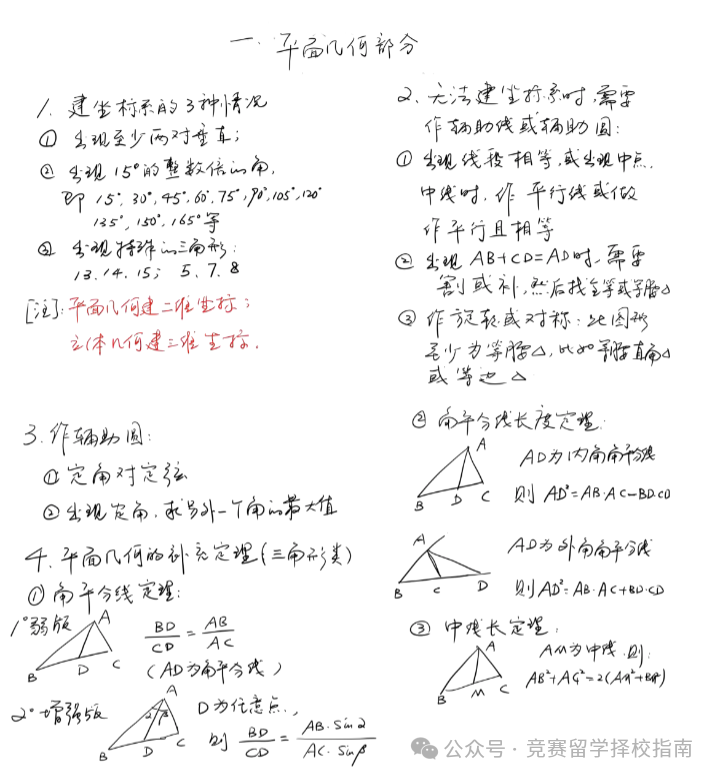 一. 平面几何部分
1. 建坐标系的3种情况
① 出现至少两对垂直;
② 出现15°的整数倍的角,
即 15°, 30°, 45°, 60°, 75°, 90°, 105°, 120°
135°, 150°, 165°等
③ 出现特殊的三角形:
13. 14. 15; 5、7、8
[注]: 平面几何建二维坐标;
立体几何建三维坐标.
2. 无法建坐标系时, 需要
作辅助线或辅助圆:
① 出现线段相等, 或出现中点.
中线时, 作平行线或做
作平行且相等
② 出现 AB+CD=AD时, 需要
割或补, 然后找全等或等腰△
③ 作旋转或对称: 此图形
至少为等腰△, 比如等腰直角△
或等边△
3. 作辅助圆:
① 定角对定弦
② 出现定角, 求另外一个角的最大值
4. 平面几何的补充定理(三角形类)
① 角平分线定理:
1°弱版
A
B
D
C
BD/CD = AB/AC
(AD为角平分线)
2°增强版
A
2 β
B
D
C
D为任意点,
则 BD/CD = AB·Sin2/AC·Sinβ
② 角平分线长度定理:
A
B
D
C
AD为内角角平分线
则 AD²=AB·AC-BD·CD
A
B
C
D
AD为外角角平分线
则AD²=AB·AC+BD·CD
③ 中线长定理:
A
B
M
C
AM为中线. 则:
AB²+AC²=2(AM²+BM²)
公众号·竞赛留学择校指南